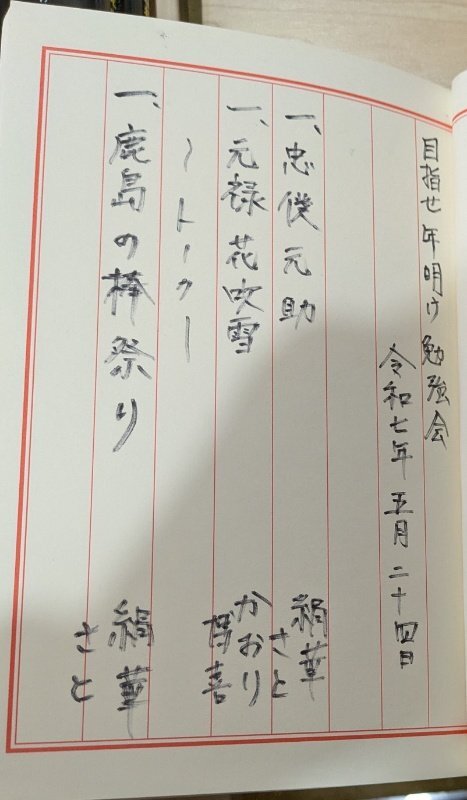 目指せ年明け勉強会
令和七年五月二十四日
一、忠僕元助
絹華
さと
一、元禄花吹雪
かおり
博喜
〜トーク〜
一、鹿島の棒祭り
絹華
さと